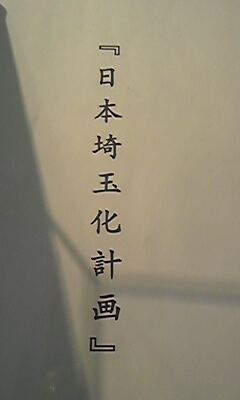 『日本埼玉化計画』